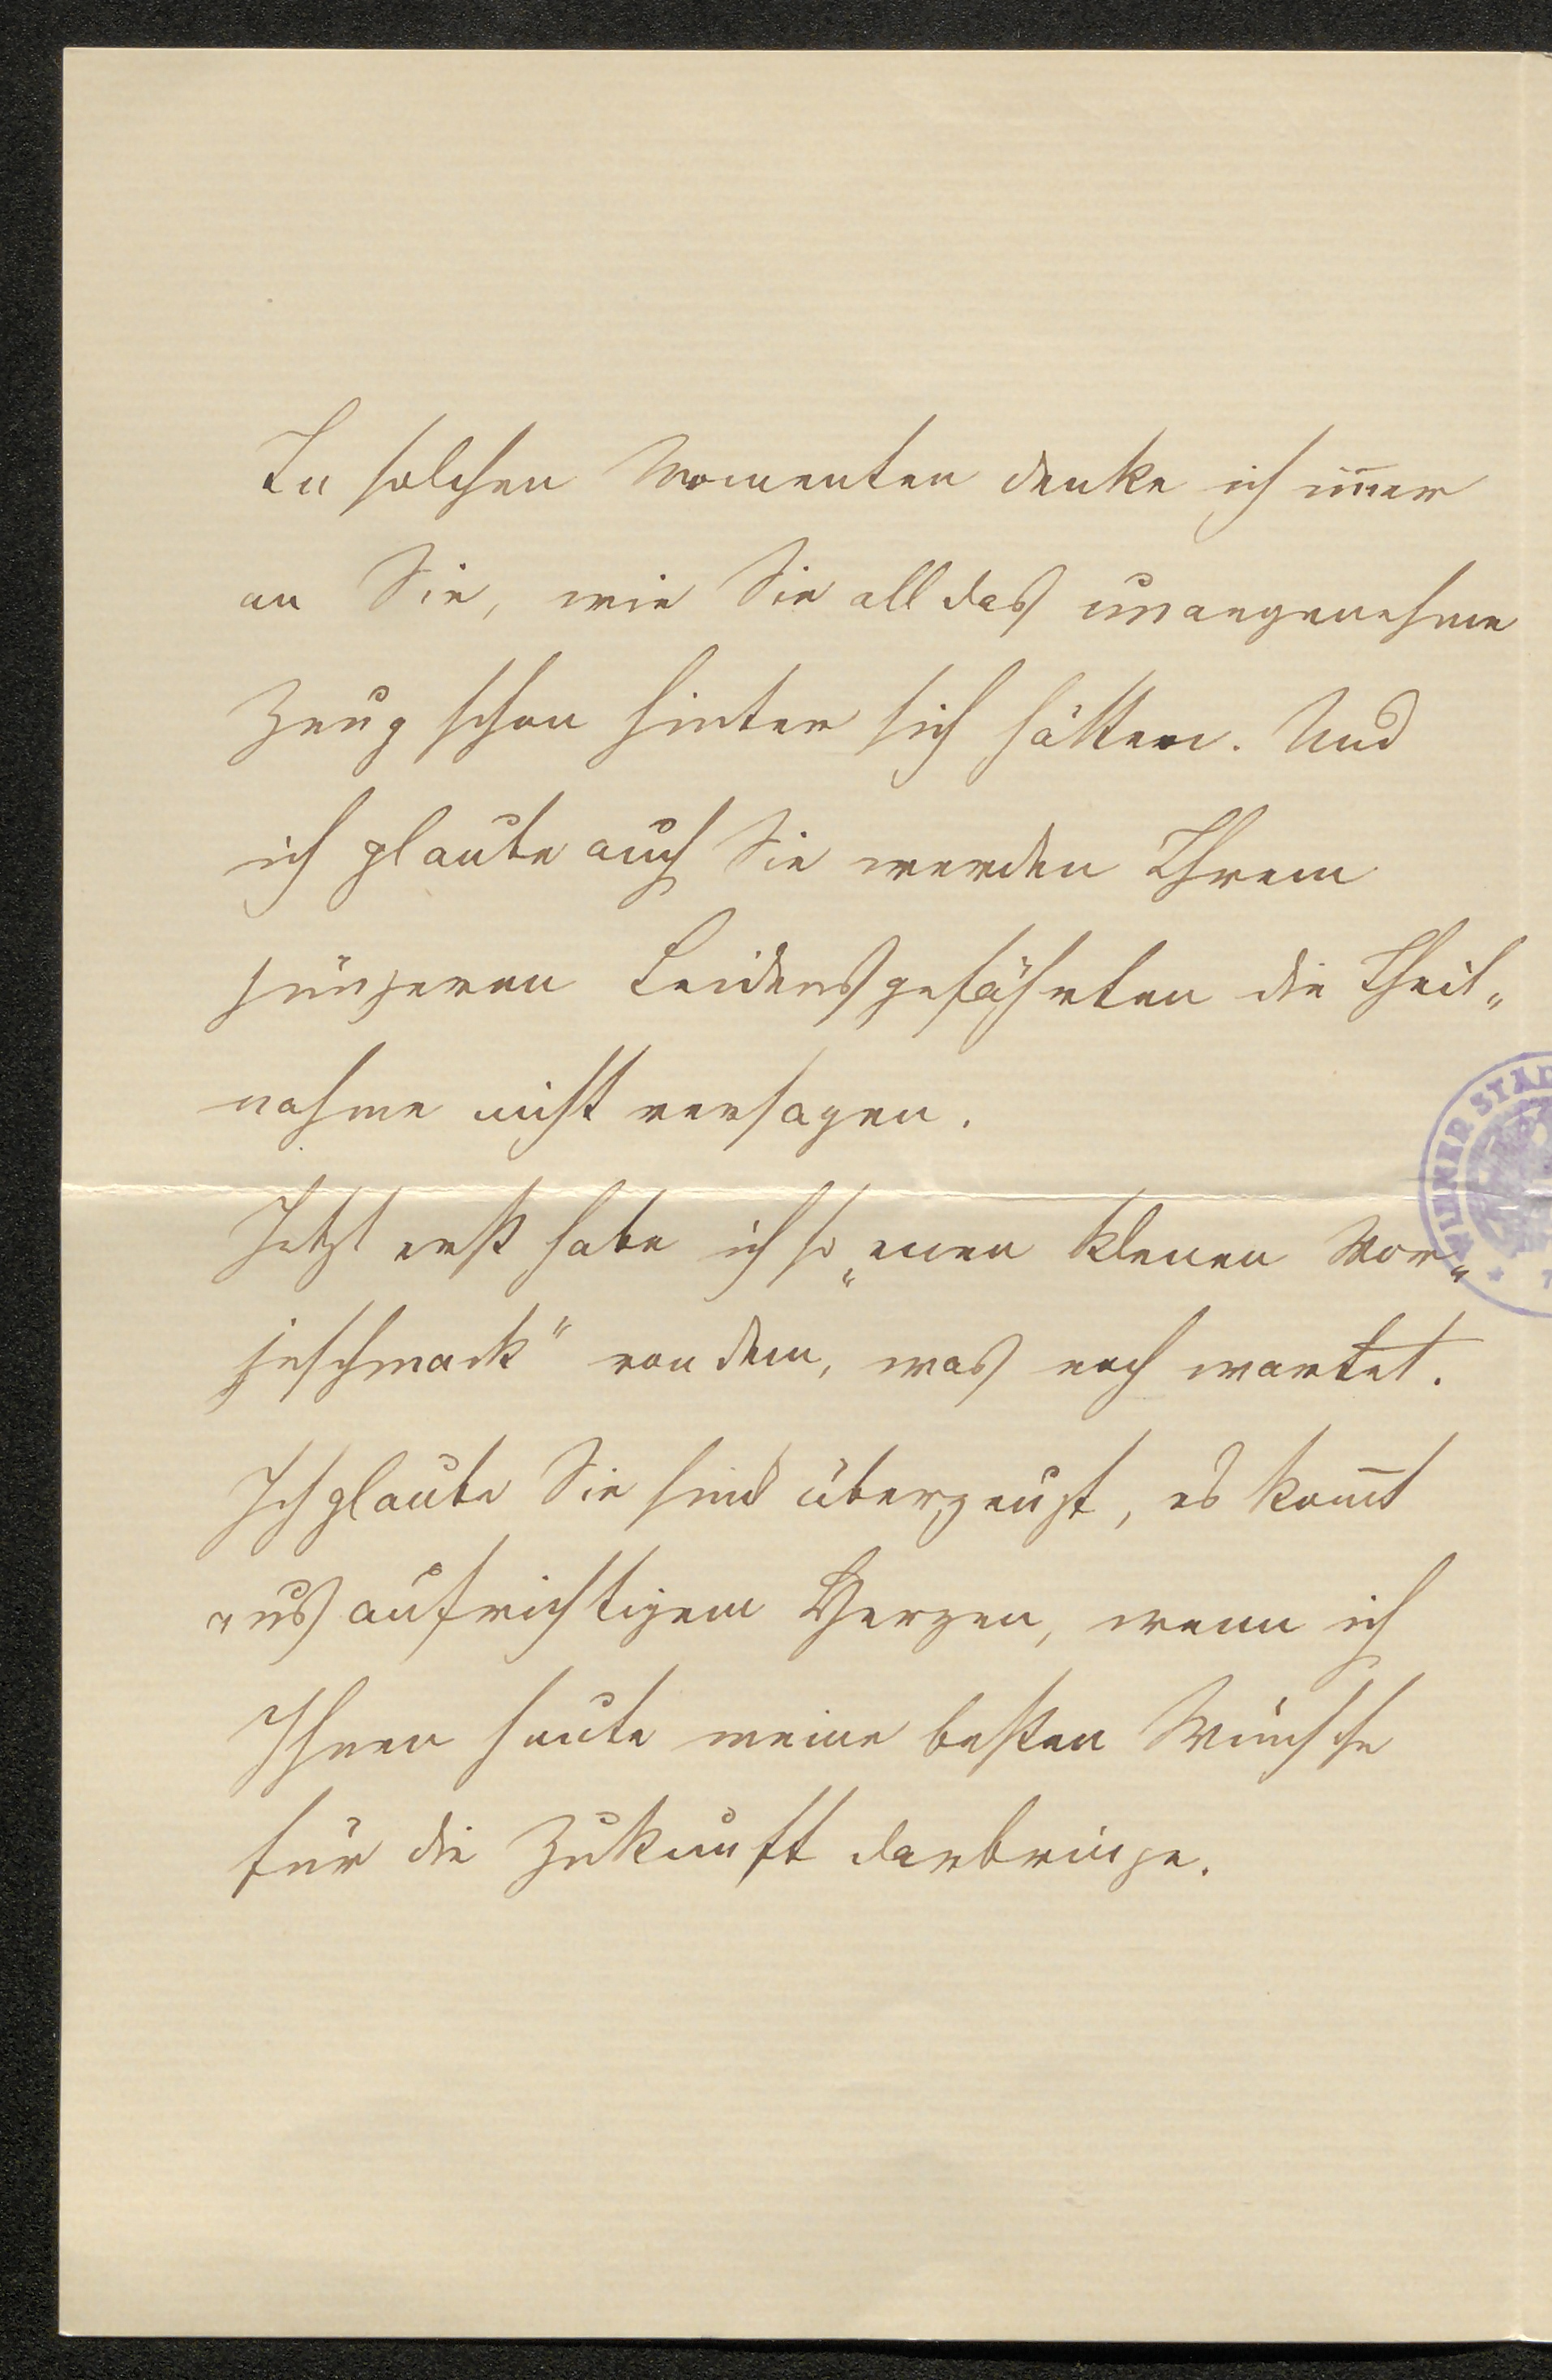 In solchen Momenten denke ich im̅er
an Sie, wie Sie all das unangenehme
Zeug schon hinter sich hätten. Und
ich glaube auch Sie werden Ihrem
jüngeren Leidensgefährten die Theil„
nahme nicht versagen.
Jetzt erst habe ich so „enen klenen Vor„
jeschmack“ von dem, was noch wartet.
Ich glaube Sie sind überzeugt, es kom̅t
aus aufrichtigem Herzen, wenn ich
Ihnen heute meine besten Wünsche
für die Zukunft darbringe.
WIENER STÄD